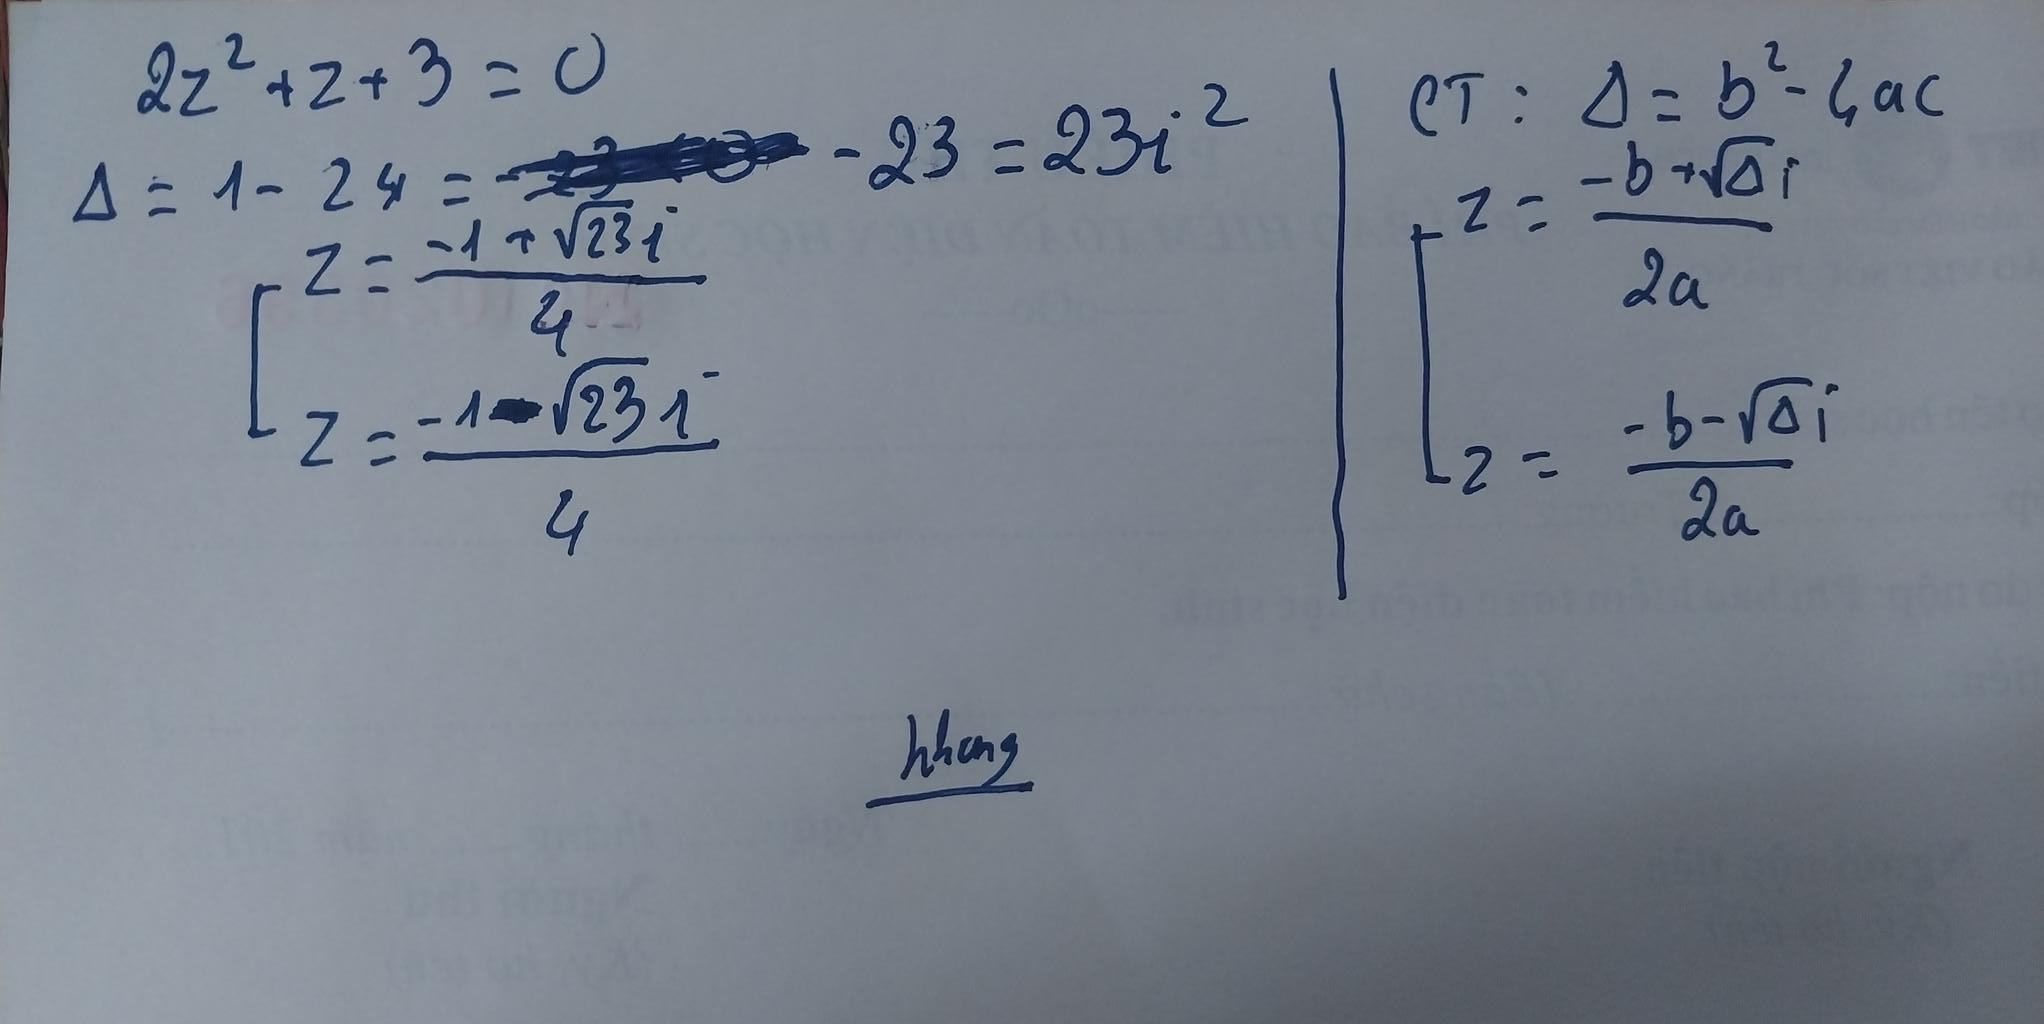 2z² + z + 3 = 0
Δ = 1 - 24 = -23 = 23i²
z = (-1 + √23 i) / 4
z = (-1 - √23 i) / 4
CT : Δ = b² - 4ac
z = (-b + √Δ i) / 2a
z = (-b - √Δ i) / 2a
khang